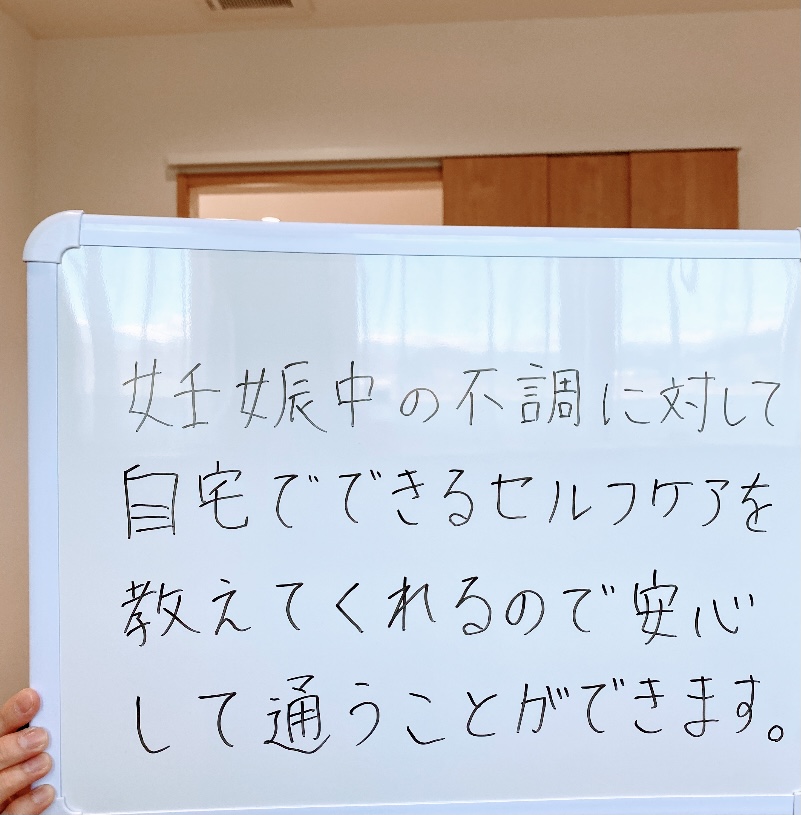 妊娠中の不調に対して
自宅でできるセルフケアを
教えてくれるので安心
して通うことができます。